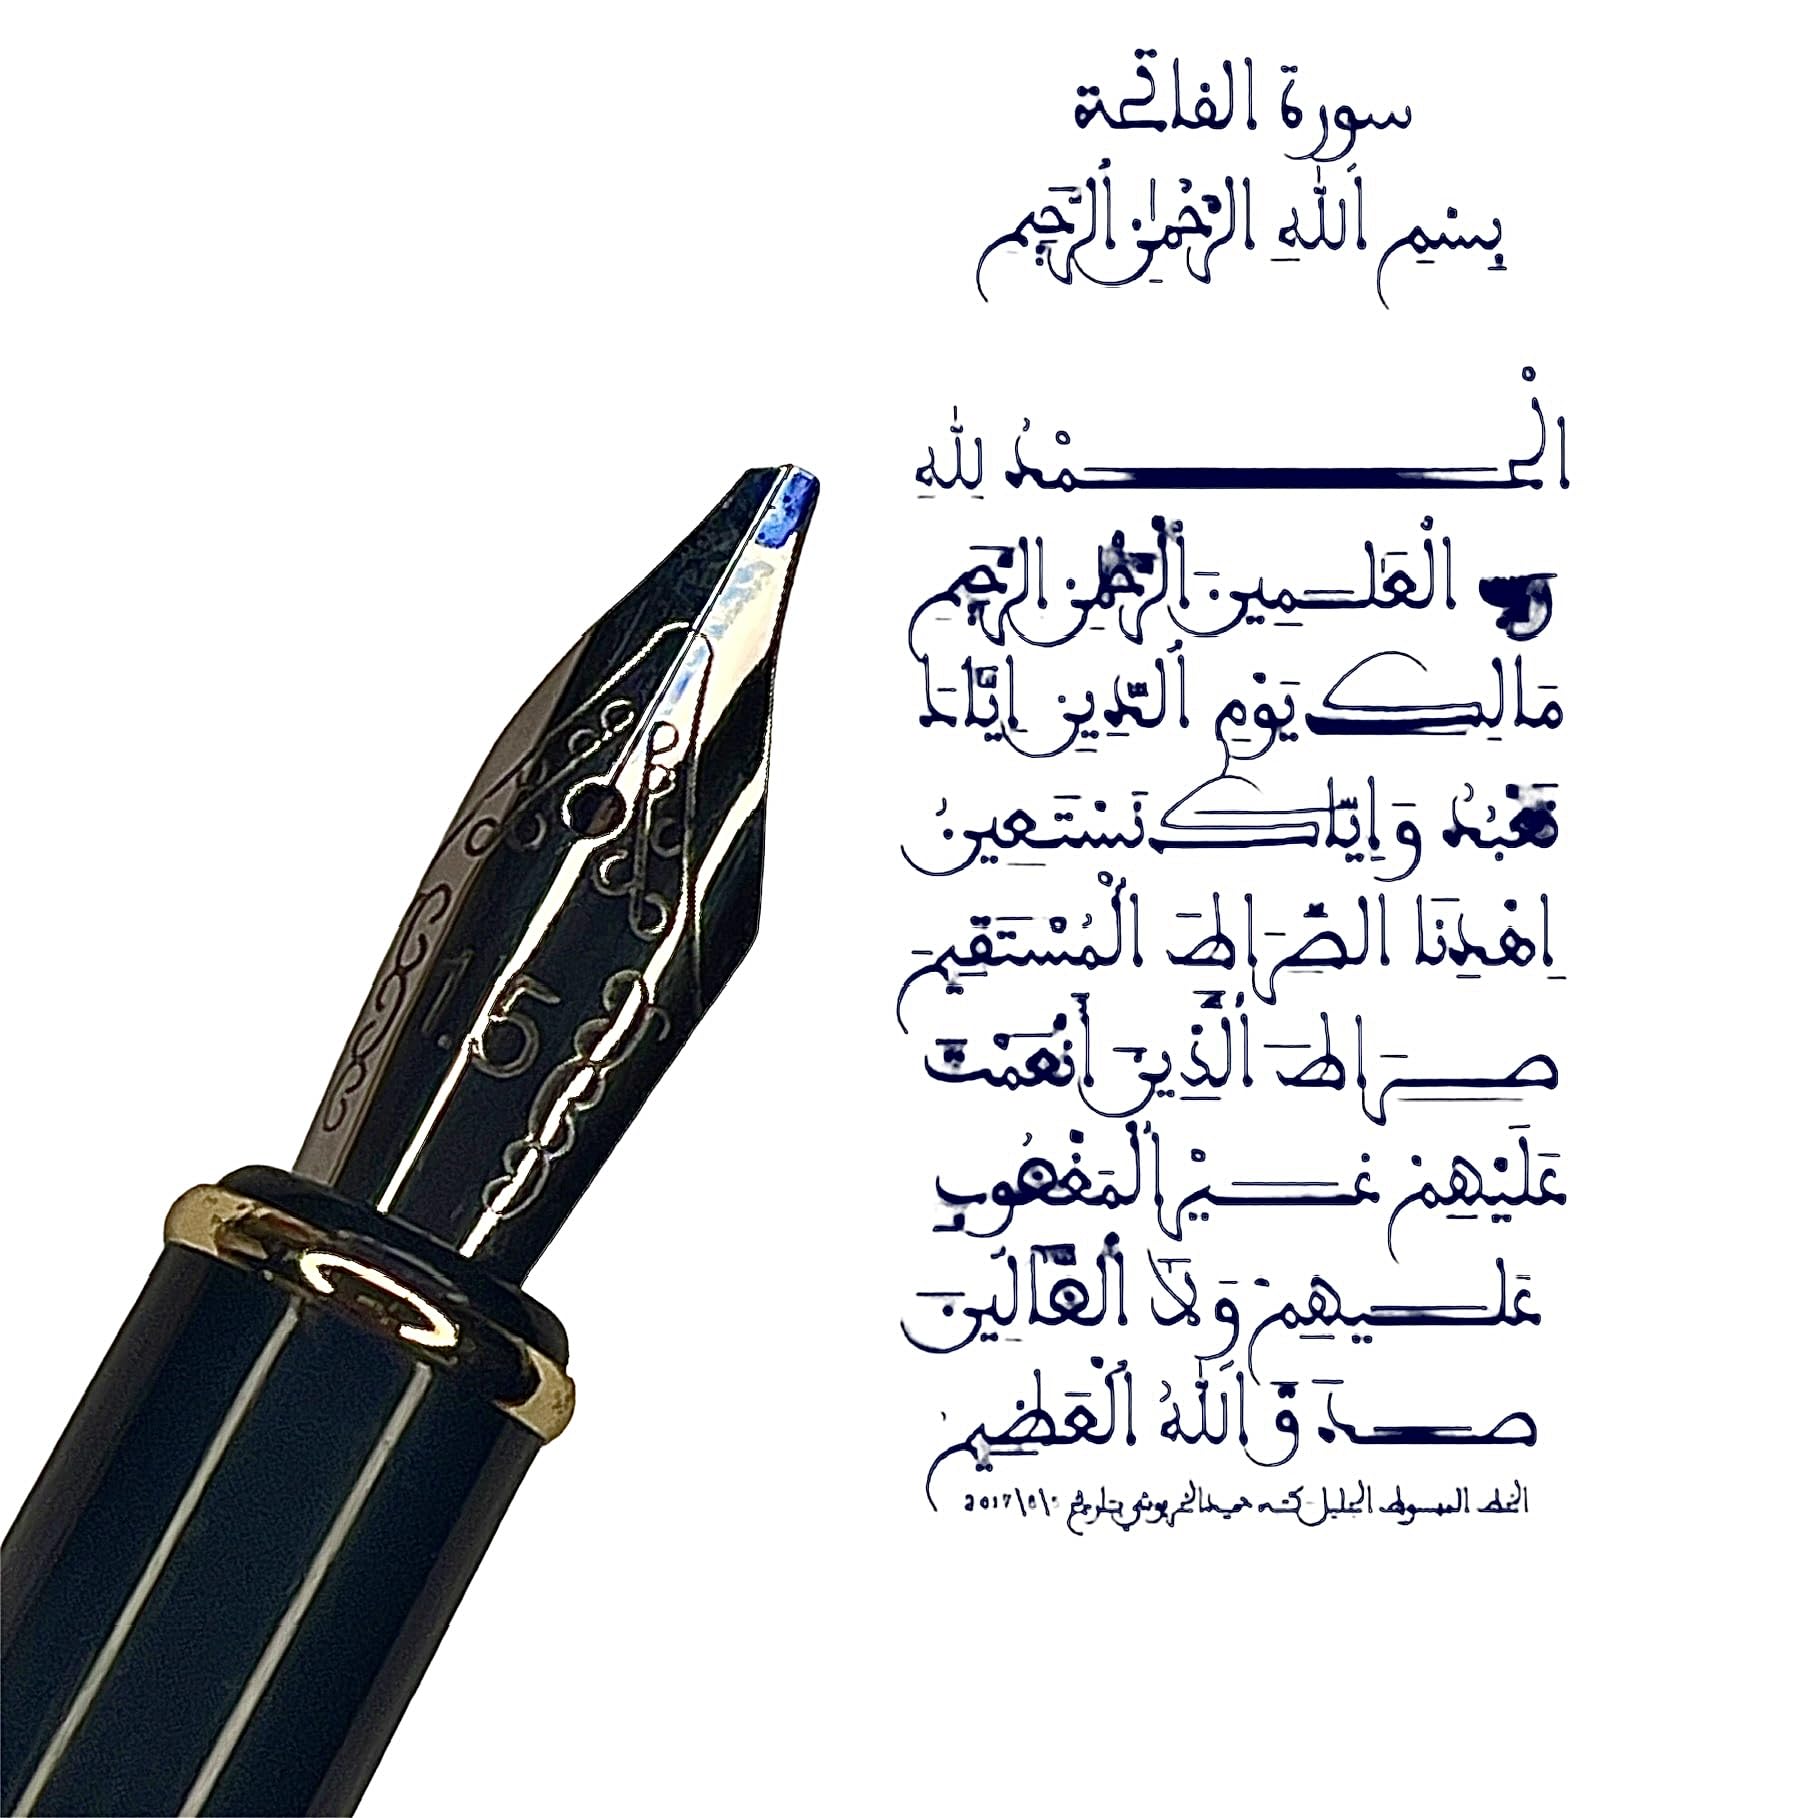 سورة الفاتحة
بِسْمِ اَللّٰهِ اَلرَّحْمٰنِ اَلرَّحِيمِ
اَلْحَمْدُ لِلّٰهِ
رَبِّ اَلْعَٰلَمِينَ اَلرَّحْمٰنِ اَلرَّحِيمِ
مَالِكِ يَوْمِ اَلدِّينِ اِيَّاكَ
نَعْبُدُ وَاِيَّاكَ نَسْتَعِينُ
اِهْدِنَا اَلصِّرَاطَ اَلْمُسْتَقِيمَ
صِرَاطَ اَلَّذِينَ أَنْعَمْتَ
عَلَيْهِمْ غَيْرِ اِلْمَغْضُوبِ
عَلَيْهِمْ وَلَا اَلضَّالِّينَ
صَدَقَ اَللّٰهُ اَلْعَظِيمُ
الخط المبسوط الجليل كتبه حميد الخربوشي
1.5